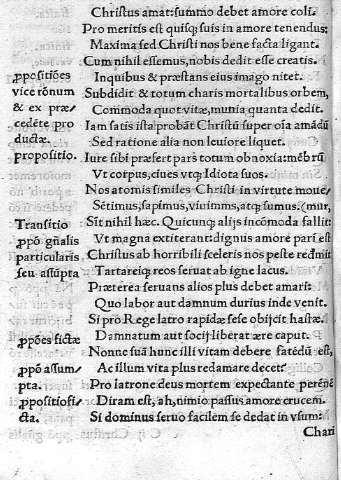 Christus amat: summo debet amore coli.
Pro meritis est quisq; suis in amore tenendus:
Maxima sed Christi nos bene facta ligant.
Cum nihil essemus, nobis dedit esse creatis.
ꝓpositiões
Inquibus & præstans eius imago nitet.
vice rõnum
Subdidit & totum charis mortalibus orbem,
& ex præ
Commoda quot vitæ, munia quanta dedit.
cedẽte pro
Iam satis ista probãt Christũ super oĩa amãdũ
ductæ.
Sed ratione alia non leuiore liquet.
propositio.
Iure sibi præfert pars totum obnoxia: mẽbrũ
Vt corpus, ciues vtq; Idiota suos.
Nos atomis similes Christi in virtute moue/
Sẽtimus, sapimus, viuimus, atq; sumus. (mur,
Transitio
Sit nihil hæc. Quicunq; alijs incõmoda fallit:
ꝓpõ gñalis
Vt magna extiterant: dignus amore pari est
particularis
Christus ab horribili sceleris nos peste redemit
seu assũpta
Tartareiq; reos seruat ab igne lacus.
Præterea seruans alios plus debet amari:
Quo labor aut damnum durius inde venit.
Si prõ Rege latro rapidæ sese obijcit hastæ.
ꝓpões fictæ
Damnatum aut socij liberat ære caput.
Nonne suã hunc illi vitam debere fatedũ est,
ꝓpõ assum/
Ac illum vita plus redamare decet?
pta.
Pro latrone deus mortem expectante perẽnẽ
ꝓpositio fi/
Diram est, ah, nimio passus amore crucem.
cta.
Si dominus seruo facilem se dedat in vsum:
Chari